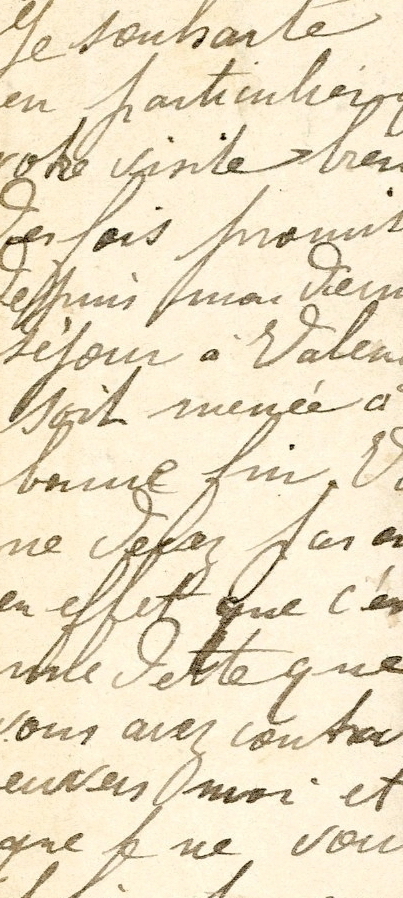 Je souhaite
en particulier
votre visite bien
des fois promis
depuis mon dern
séjour à Valen
soit menée à
bonne fin. V
ne devez pas
en effet que c'é
une dette que
vous avez contra
envers moi et
que je ne vou